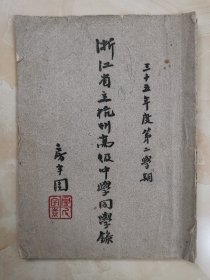 三十五年度第二學期
浙江省立杭州高級中學同學錄